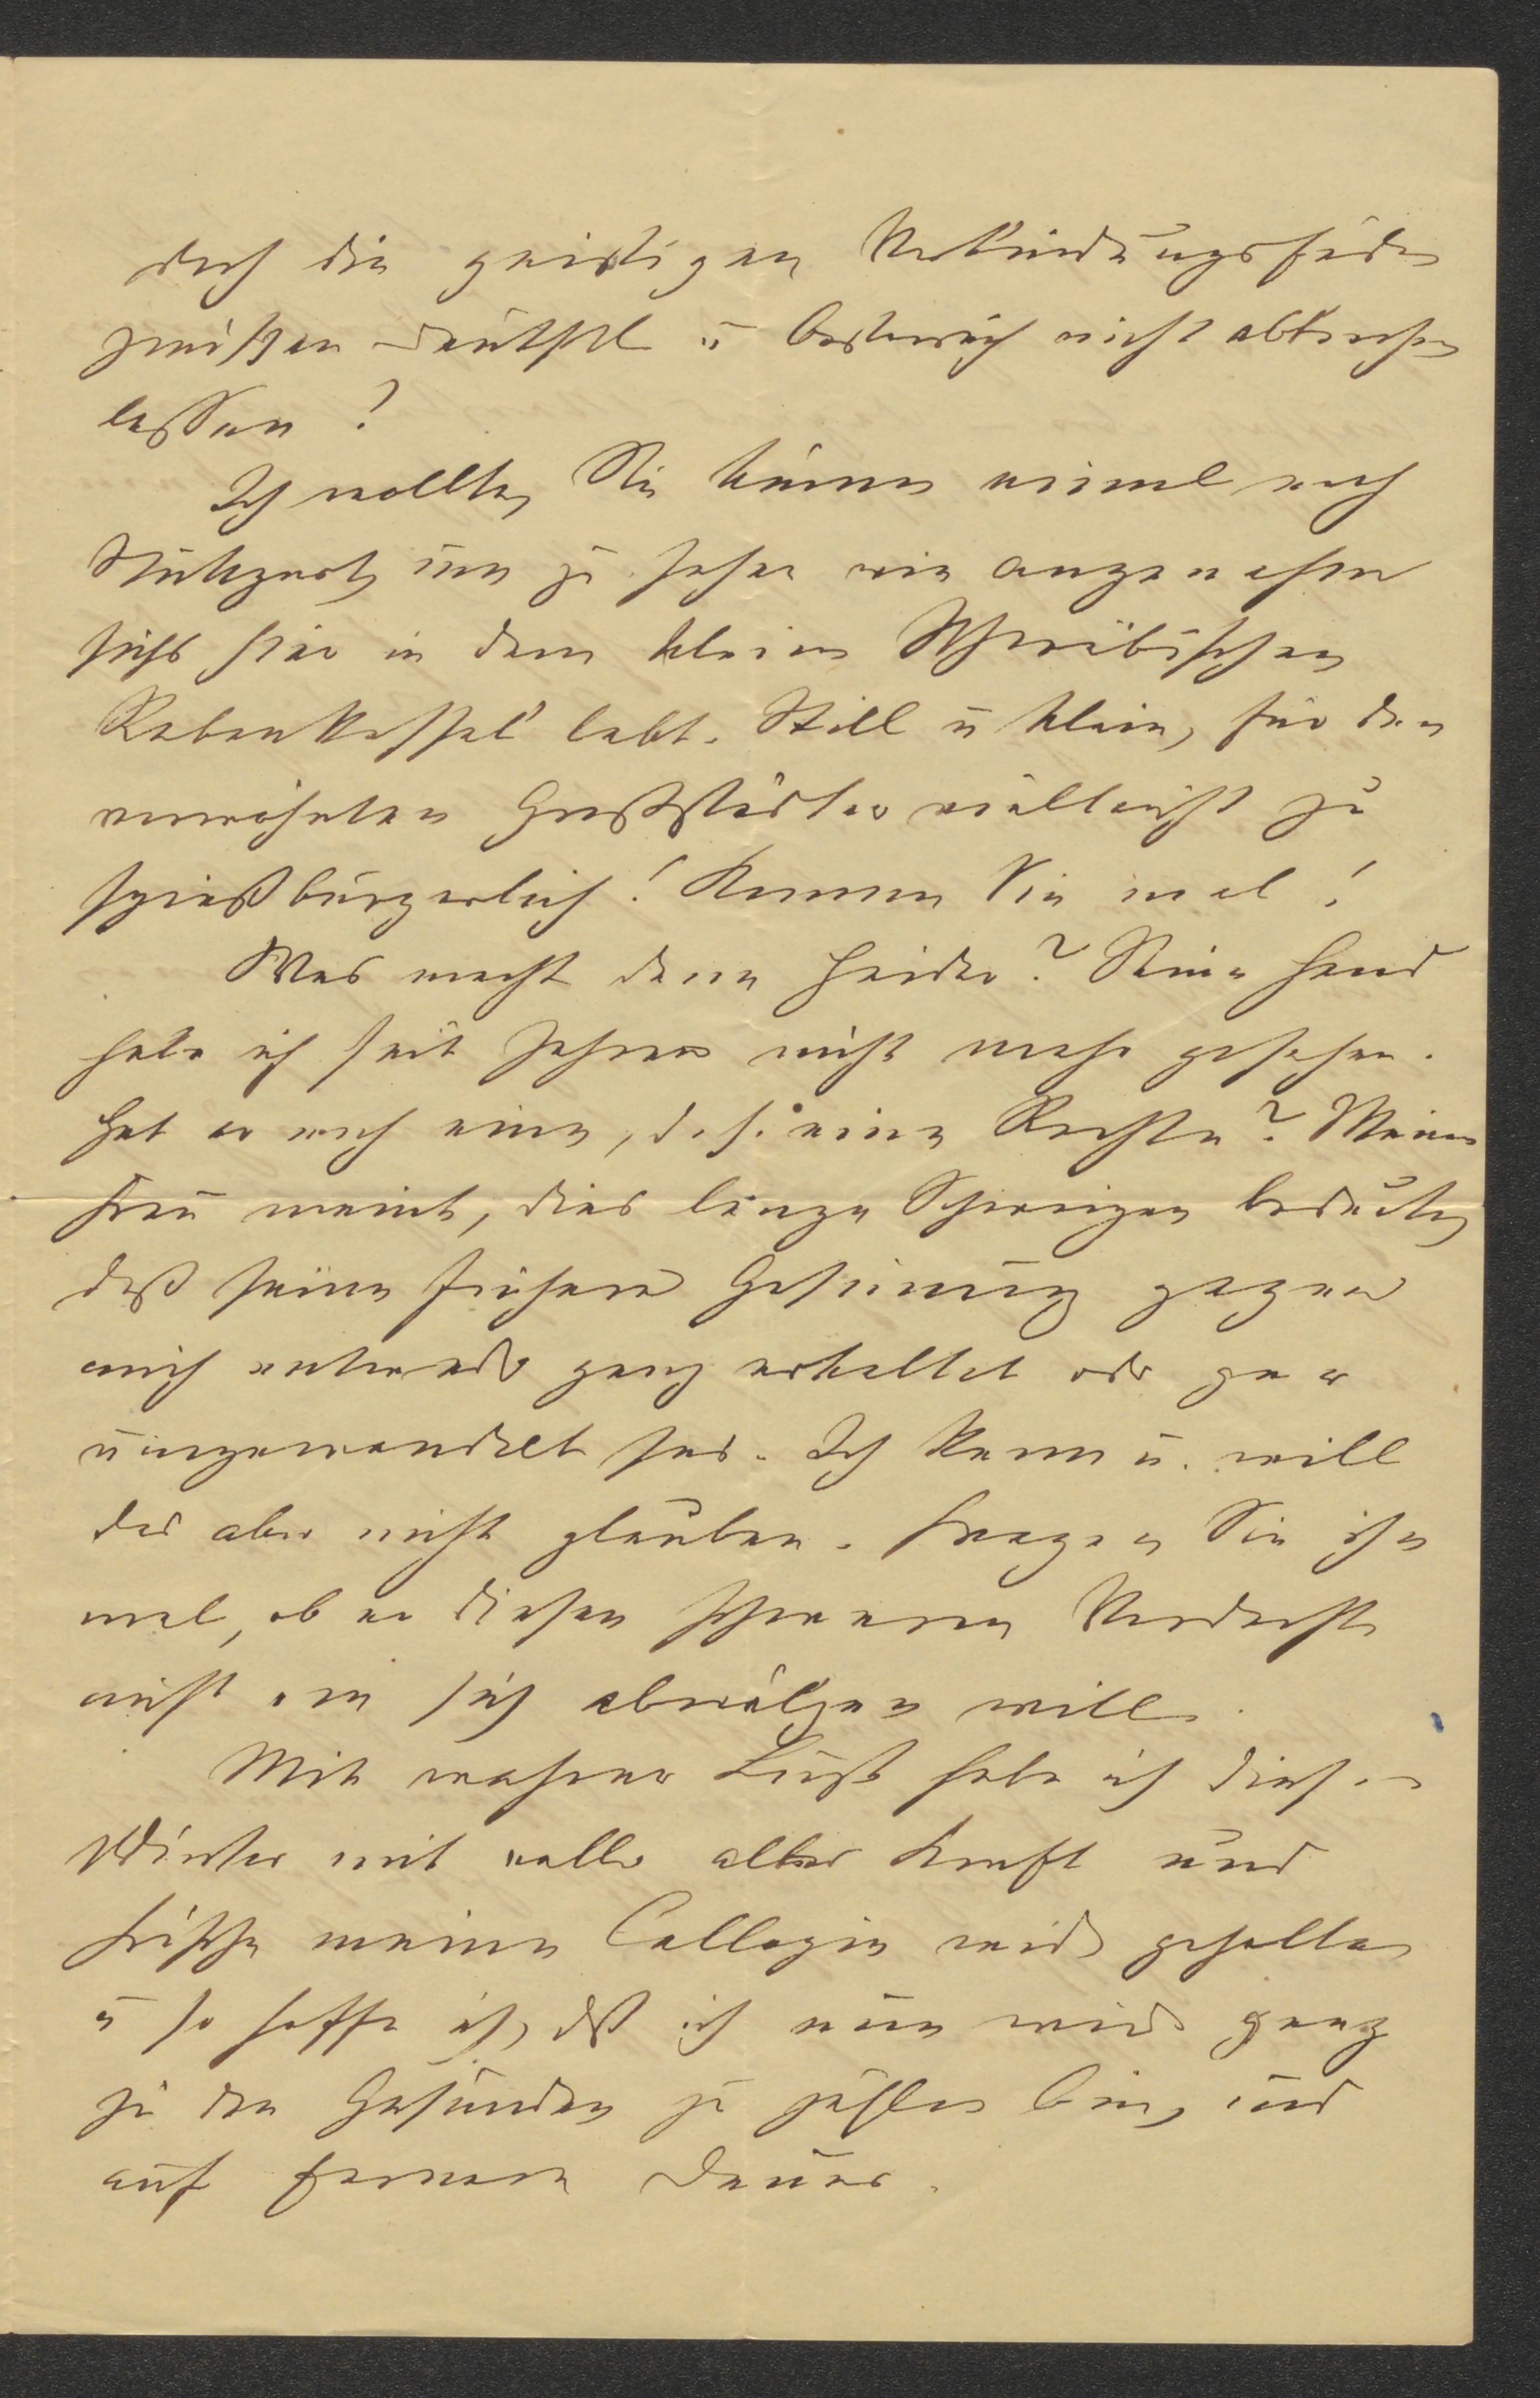 doch die geistigen Verbindungsfäden
zwischen Deutschl u Oesterreich nicht abbrechen
lassen?
Ich wollte, Sie kämen einmal nach
Stuttgart, um zu sehen wie angenehm
sichs hier in dem kleinen Schwäbischen
Rebenkessel lebt. Still u klein, für den
verwöhnten Großstädter vielleicht zu
spießbürgerlich! Kommen Sie mal!
Was macht denn Heider? Seine Hand
habe ich seit Jahren nicht mehr gesehen.
Hat er noch eine, d. h. eine Rechte? Meine
Frau meint, dies lange Schweigen bedeute,
daß seine frühere Gesinnung gegen
mich entweder ganz erkaltet oder gar
umgewandelt sei. Ich kann u. will
das aber nicht glauben. Fragen Sie ihn
mal, ob er diesen schweren Verdacht
nicht von sich abwälzen will.
Mit wahrer Lust habe ich diesen
Winter mit voller alter Kraft und
Frische meine Collegien wieder gehalten
u so hoffe ich, daß ich nun wieder ganz
zu den Gesunden zu zählen bin, und
auf fernere Dauer.